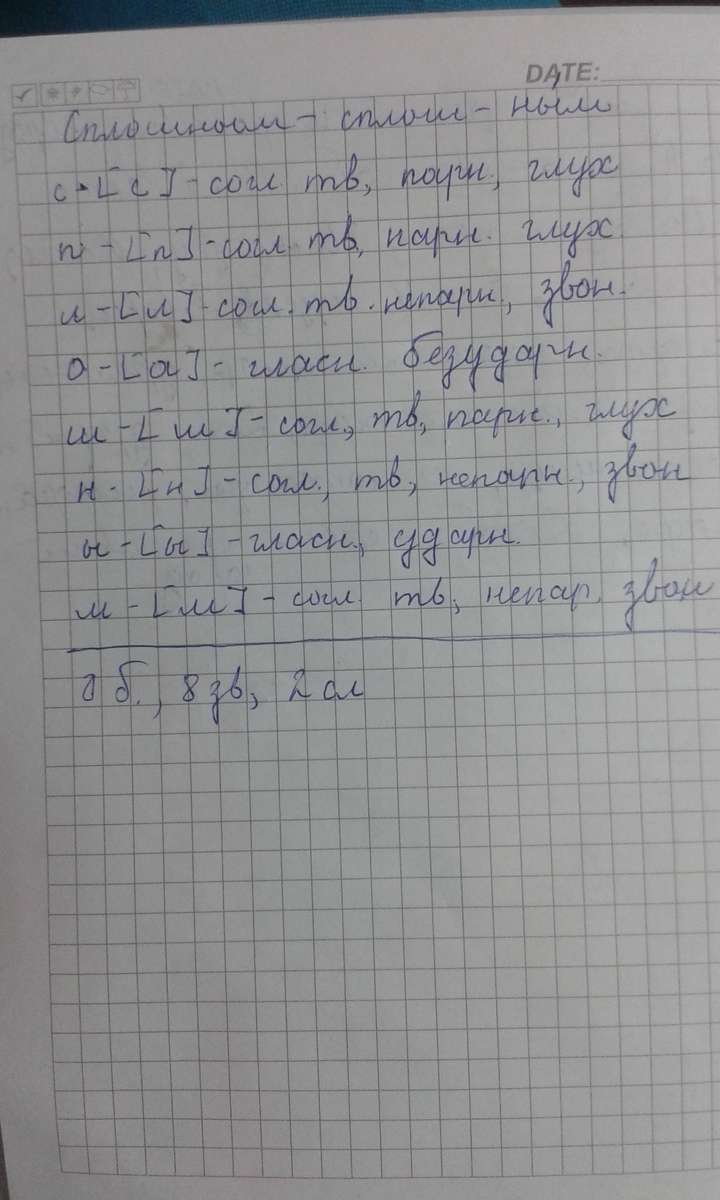 DATE:
Сплошным - сплош - ным
с - [с] - согл тв, парн, глух
п - [п] - согл тв, парн. глух
л - [л] - согл. тв. непарн, звон.
о - [а] - гласн. безударн.
ш - [ш] - согл, тв, парн., глух
н - [н] - согл., тв, непарн., звон
ы - [ы] - гласн., ударн.
м - [м] - согл тв, непар, звон
8 б., 8 зв, 2 сл